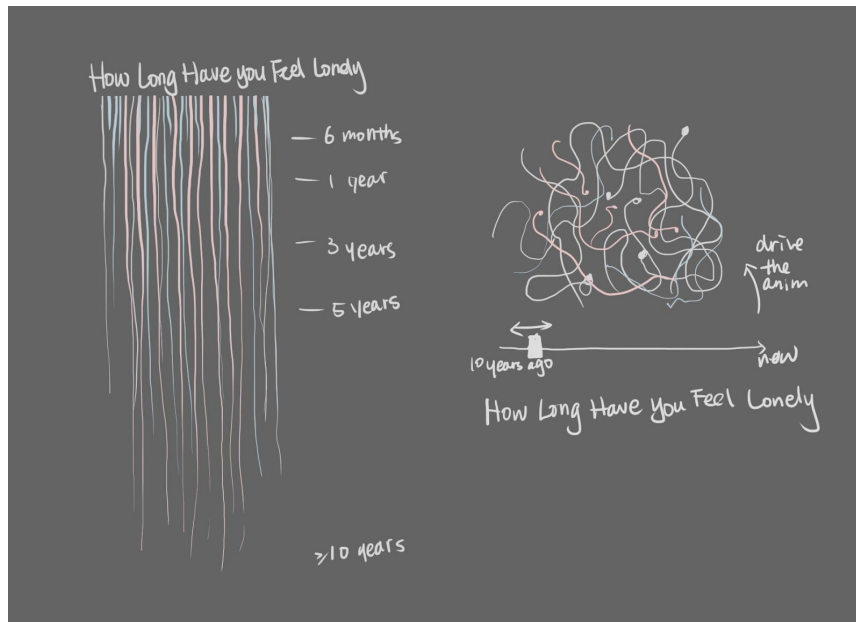 How Long Have you Feel Lonely
6 months
1 year
3 years
5 years
≥10 years
drive
the
anim
10 years ago
now
How Long Have you Feel Lonely